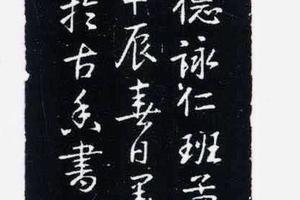 德詠仁班
辰春日
於古香書